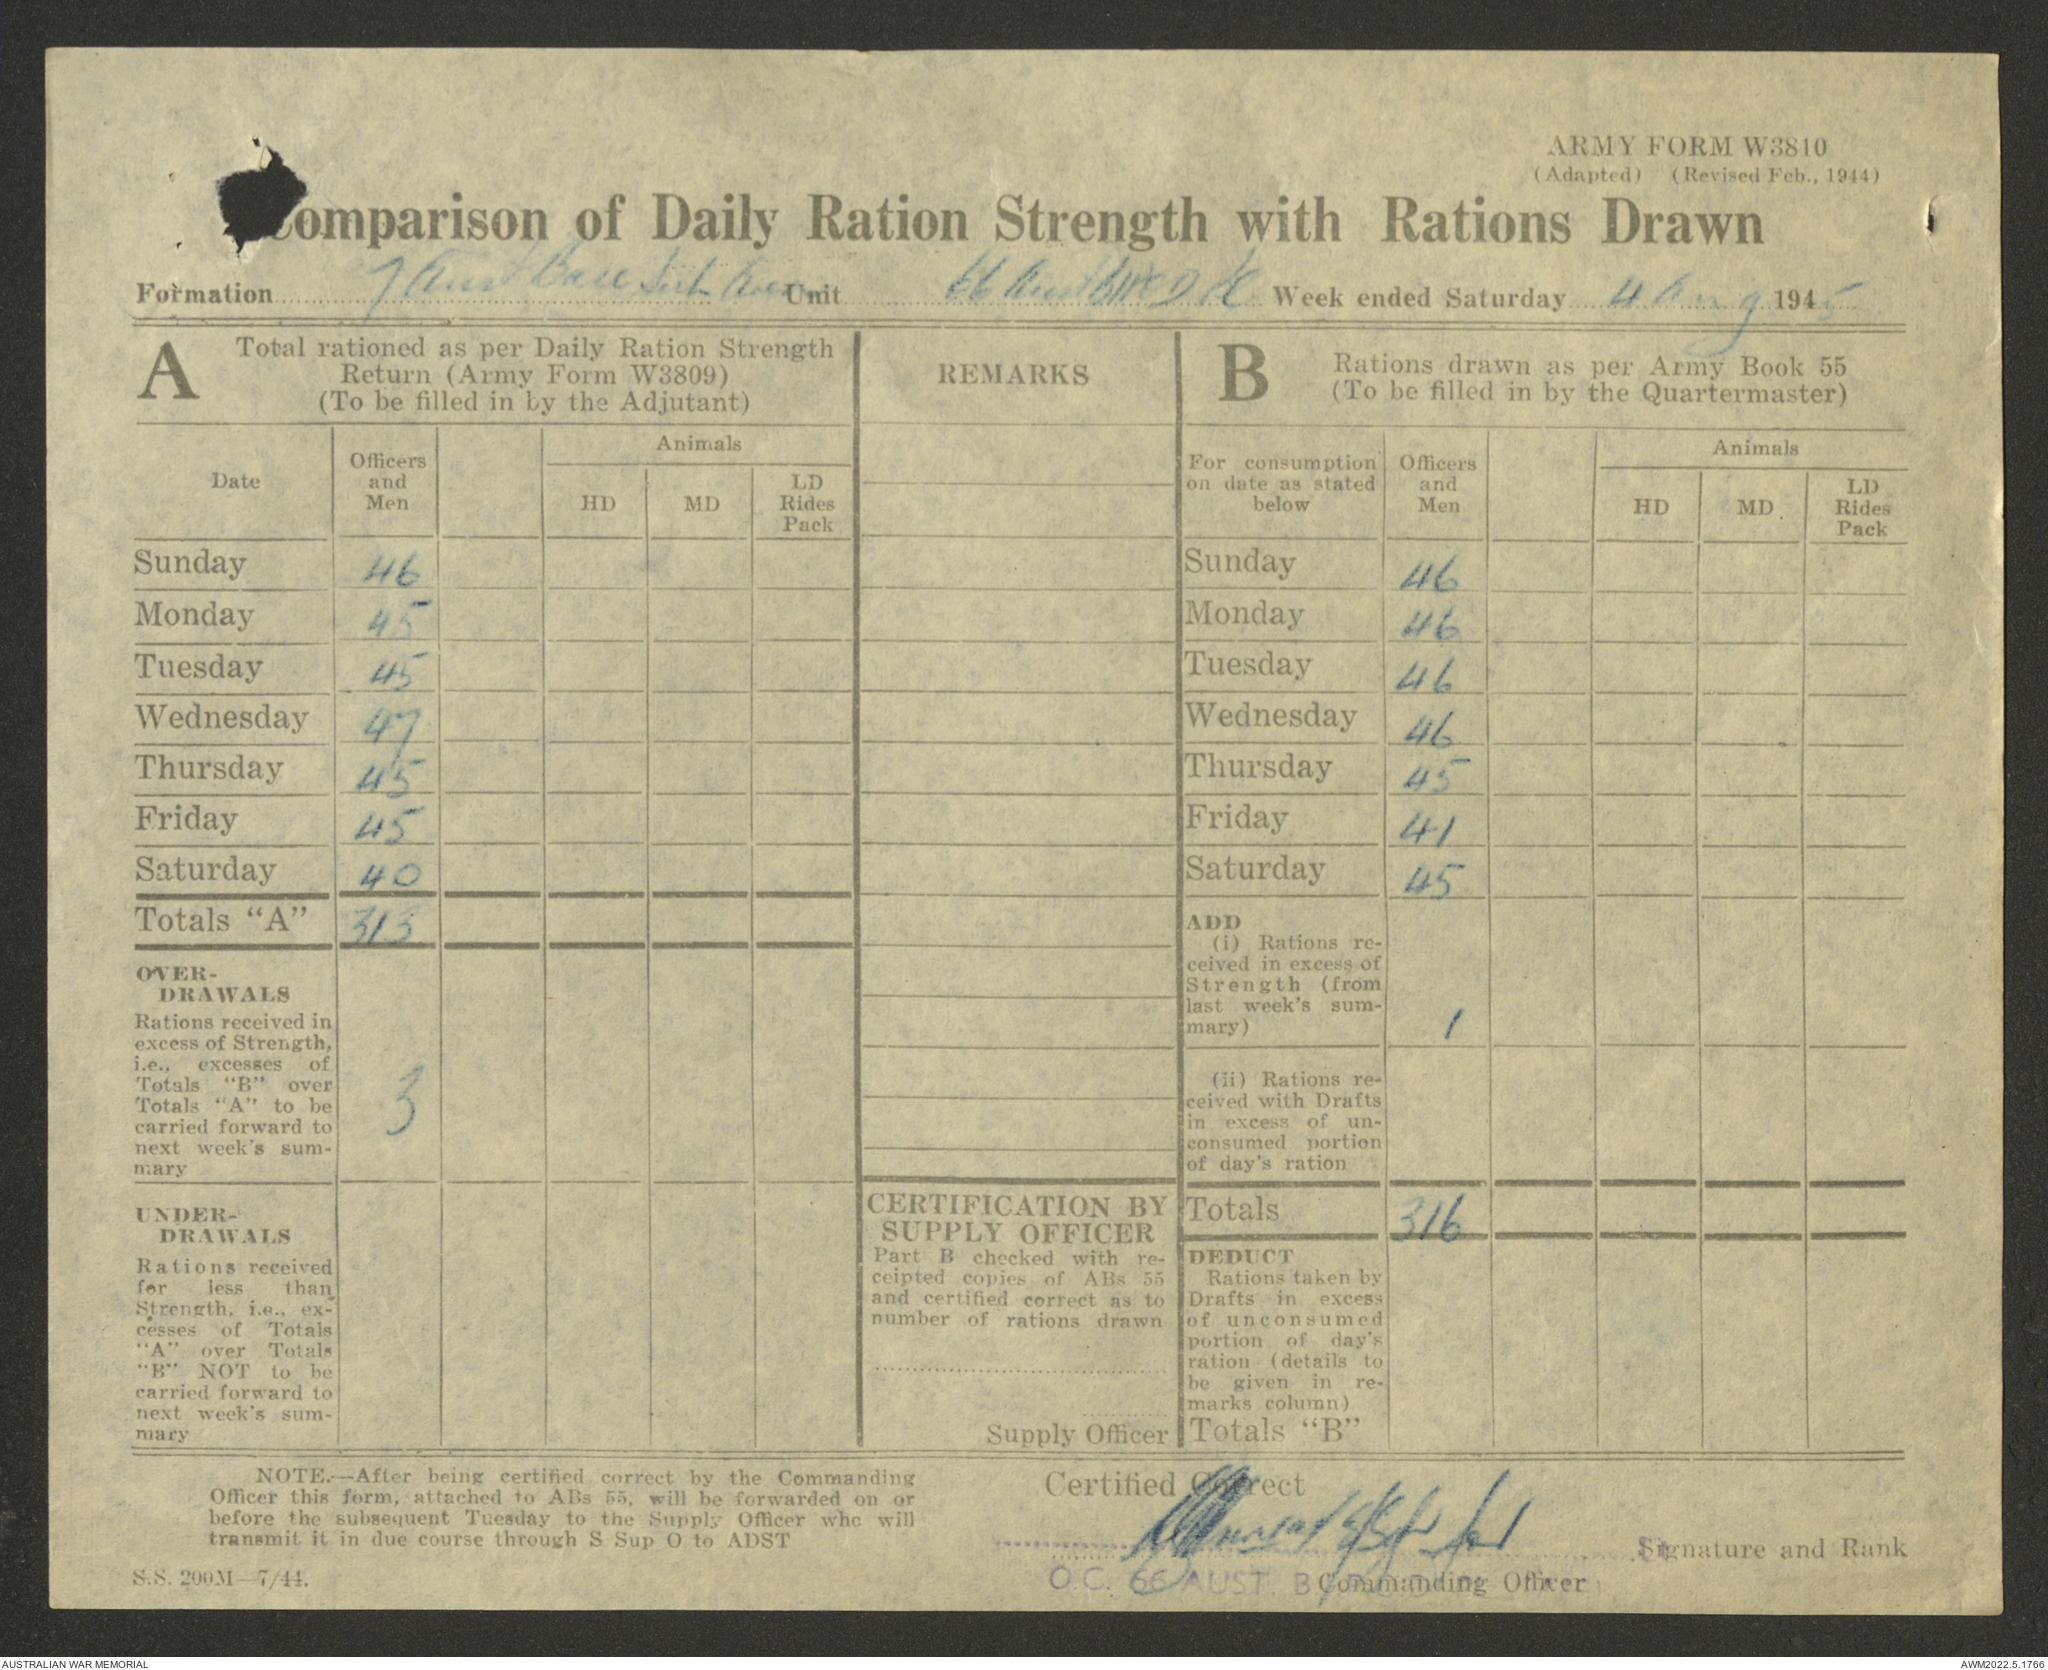 ARMY FORM W3810
(Adapted) (Revised Feb., 1944)
Comparison of Daily Ration Strength with Rations Drawn
Formation 7 Aust Base Sub Area Unit 66 Aust Week ended Saturday 4 Aug 1945
A
Total rationed as per Daily Ration Strength
Return (Army Form W3809)
(To be filled in by the Adjutant)
Date
Officers
and
Men
Animals
HD
MD
LD
Rides
Pack
Sunday 46
Monday 45
Tuesday 45
Wednesday 47
Thursday 45
Friday 45
Saturday 40
Totals "A" 313
OVER-
DRAWALS
Rations received in
excess of Strength,
i.e., excesses of
Totals "B" over
Totals "A" to be
carried forward to
next week's sum-
mary
3
UNDER-
DRAWALS
Rations received
for less than
Strength, i.e., ex-
cesses of Totals
"A" over Totals
"B" NOT to be
carried forward to
next week's sum-
mary
REMARKS
CERTIFICATION BY
SUPPLY OFFICER
Part B checked with re-
ceipted copies of ABs 55
and certified correct as to
number of rations drawn
Supply Officer
B
Rations drawn as per Army Book 55
(To be filled in by the Quartermaster)
For consumption
on date as stated
below
Officers
and
Men
Animals
HD
MD
LD
Rides
Pack
Sunday 46
Monday 46
Tuesday 46
Wednesday 46
Thursday 45
Friday 41
Saturday 45
ADD
(i) Rations re-
ceived in excess of
Strength (from
last week's sum-
mary)
1
(ii) Rations re-
ceived with Drafts
in excess of un-
consumed portion
of day's ration
Totals 316
DEDUCT
Rations taken by
Drafts in excess
of unconsumed
portion of day's
ration (details to
be given in re-
marks column)
Totals "B"
NOTE.—After being certified correct by the Commanding
Officer this form, attached to ABs 55, will be forwarded on or
before the subsequent Tuesday to the Supply Officer who will
transmit it in due course through S Sup O to ADST
S.S. 200M—7/44.
Certified Correct
Signature and Rank
O.C. 66 AUST. B
Commanding Officer
AUSTRALIAN WAR MEMORIAL
AWM2022.5.1766